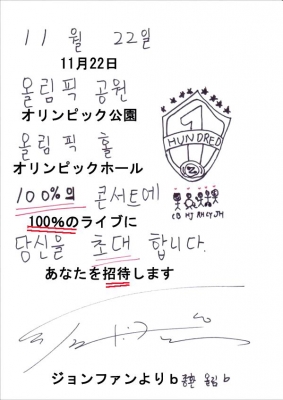 11월 22일
11月22日
올림픽 공원
オリンピック公園
올림픽 홀
オリンピックホール
1
HUNDRED
CB HJ RH CY JH
100%의 콘서트에
100%のライブに
당신을 초대 합니다.
あなたを招待します
ジョンファンよりb 종환 올림 b